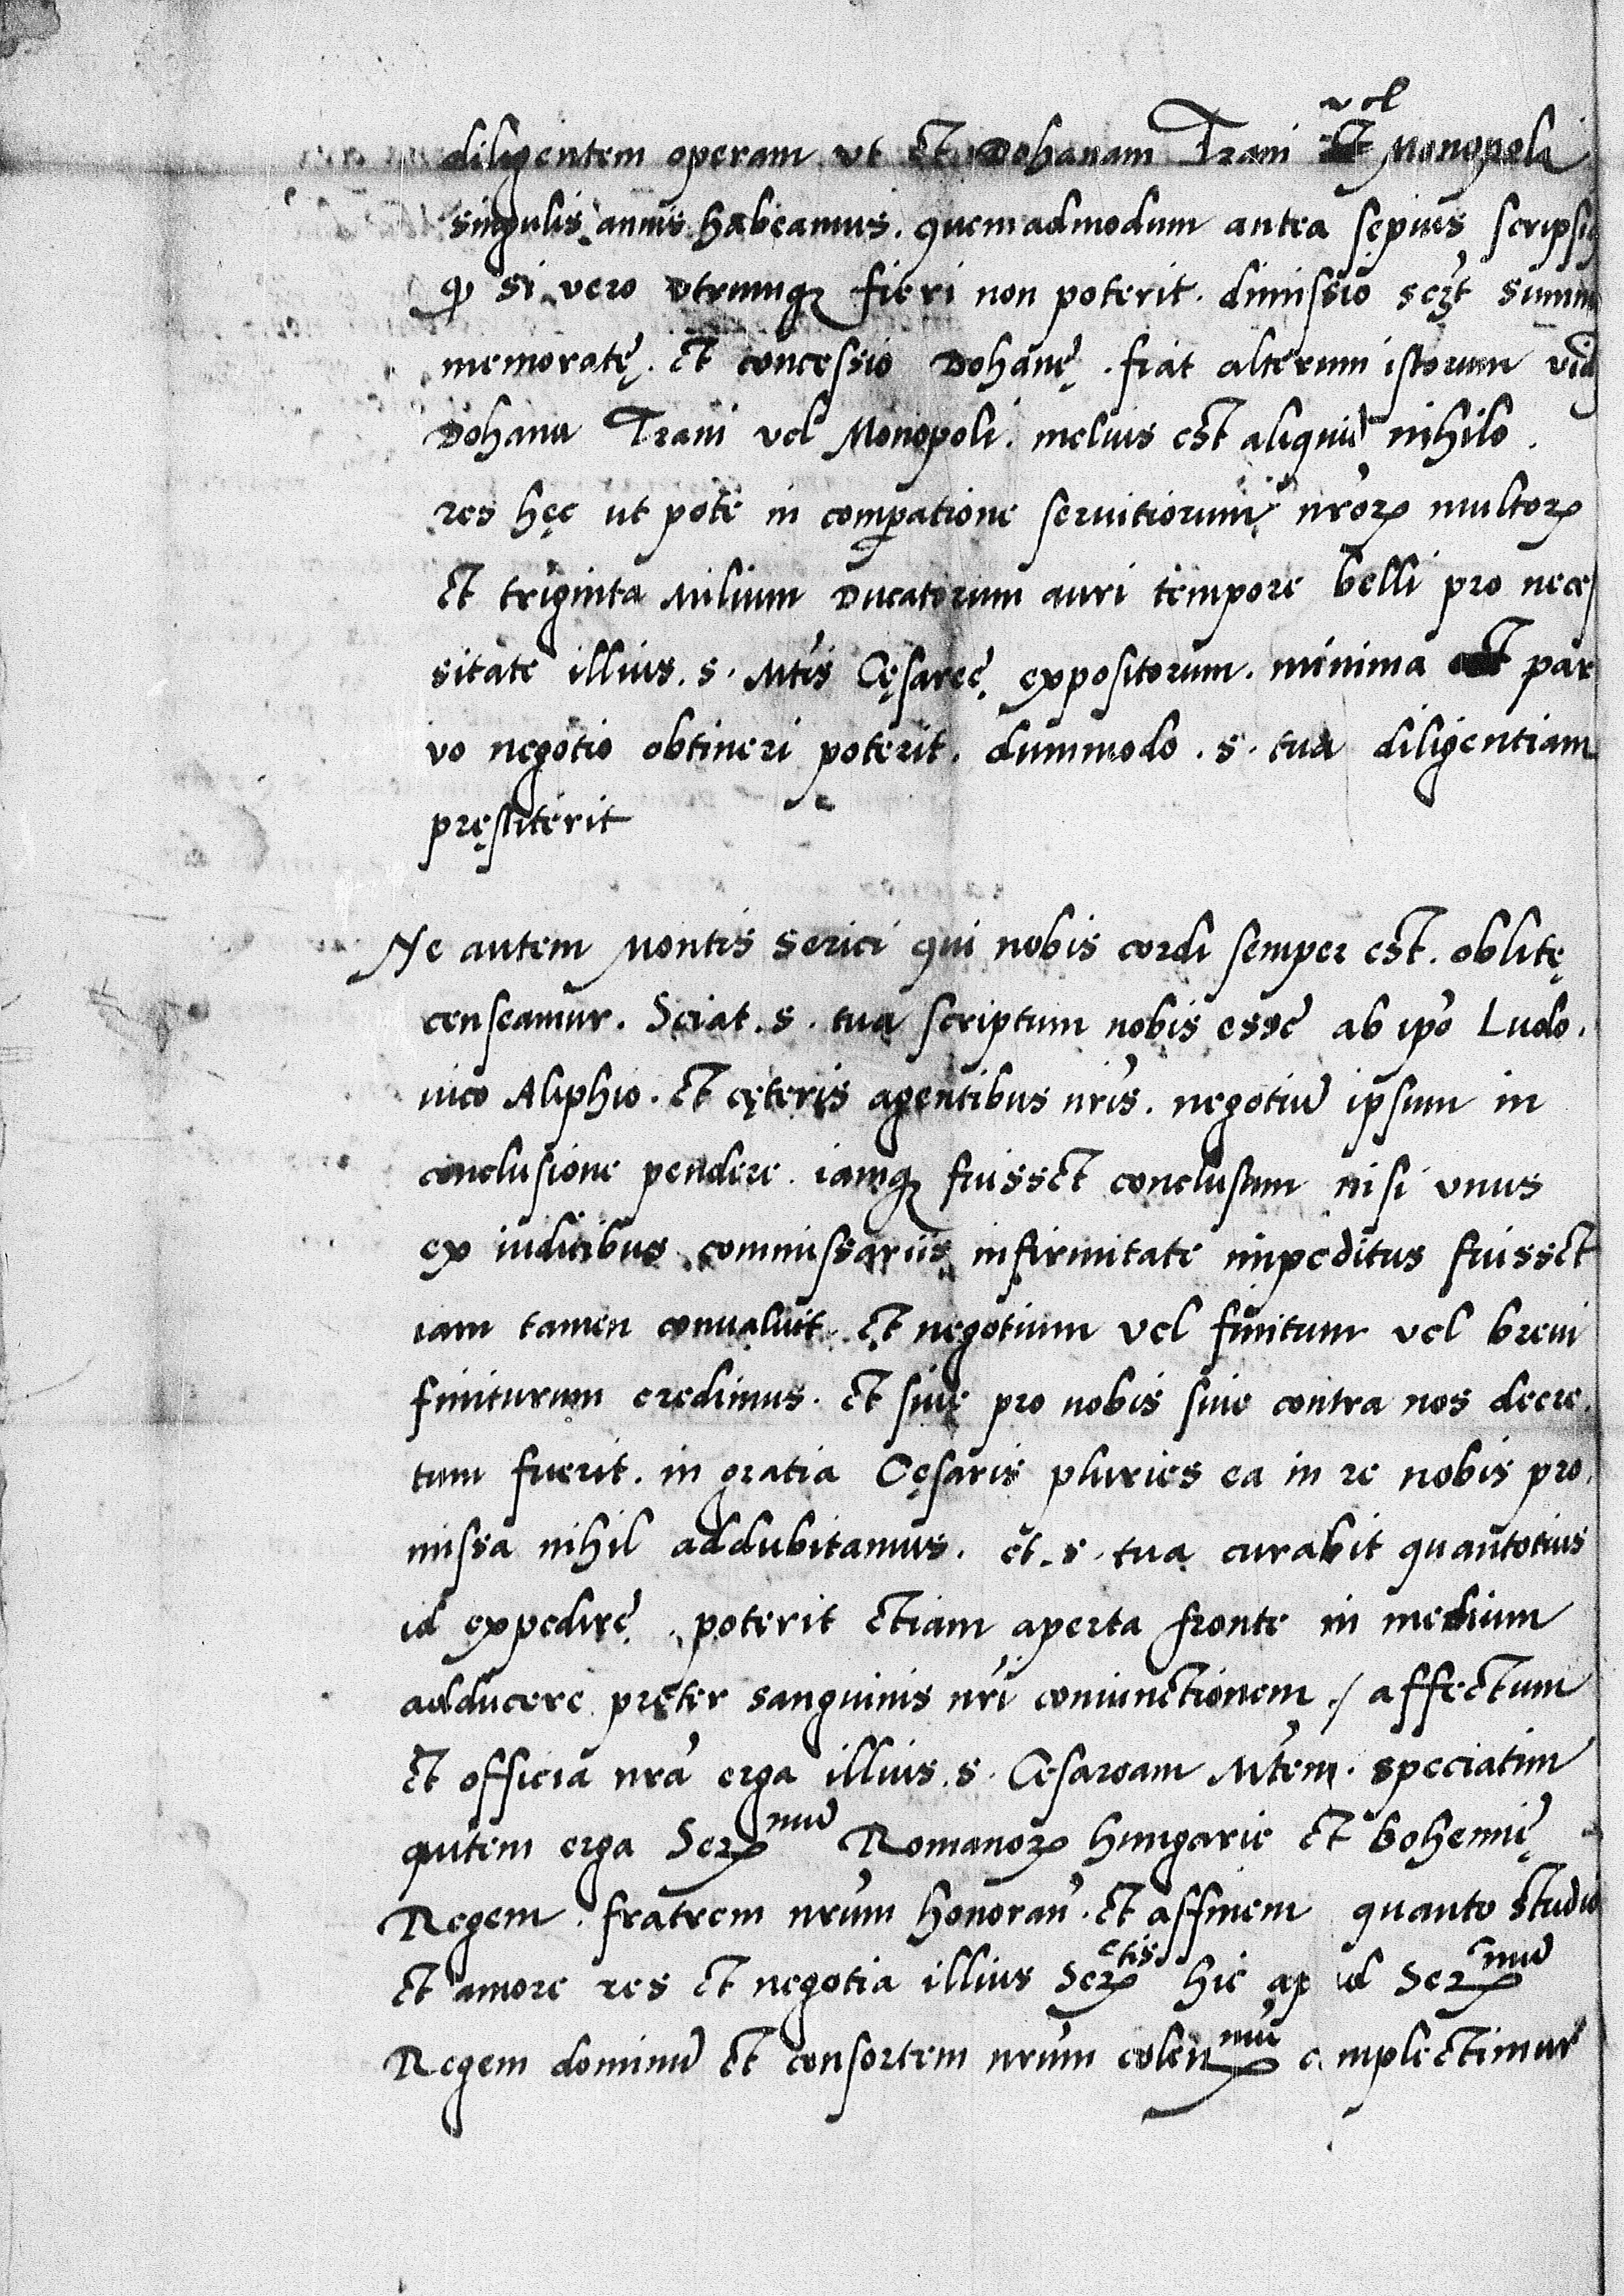 vel
diligentem operam ut et Dohanam Trani Monopoli
singulis annis habeamus. quemadmodum antea sępius scripsi
ꝙ si vero utrumqꝫ fieri non poterit. dimissio sczt summ
memoratę. et concessio Dohanę. fiat alterum istorum vid
Dohana Trani vel Monopoli. melius est aliquid nihilo.
res hęc ut pote in compatione servitiorum nrorꝫ multorꝫ
Et triginta Milium Ducatorum auri tempore belli pro neces
sitate illius. s. Mtis Cęsareę expositorum. minima et par
vo negotio obtineri poterit. dummodo. s. tua diligentiam
pręstiterit
Ne autem Montis Serici qui nobis cordi semper est. oblitę
censeamur. Sciat. s. tua scriptum nobis esse ab ipo Ludo.
vico Aliphio. Et cęteris agentibus nris. negotiū ipsum in
conclusione pendere. iamqꝫ fuisset conclusum nisi unus
ex iudicibus commissariis infirmitate impeditus fuisset
iam tamen convaluit. Et negotium vel finitum vel brevi
finiturum credimus. Et sive pro nobis sive contra nos decre.
tum fuerit. in gratia Cęsaris pluries ea in re nobis pro.
missa nihil addubitamus. et. s. tua curabit quantotius
id expedire. poterit etiam aperta fronte in medium
adducere pręter sanguinis nri coniunctionem / affectum
Et officia nra erga illius. s. Cesaream Mtem. speciatim
autem erga Serꝫmū Romanorꝫ Hungarie Et bohemię
Regem. fratrem nrum honoran. Et affinem quanto studio
Et amore res Et negotia illius Serꝫtis hic apud Serꝫmū
Regem dominū Et consortem nrum colenmū complectimur